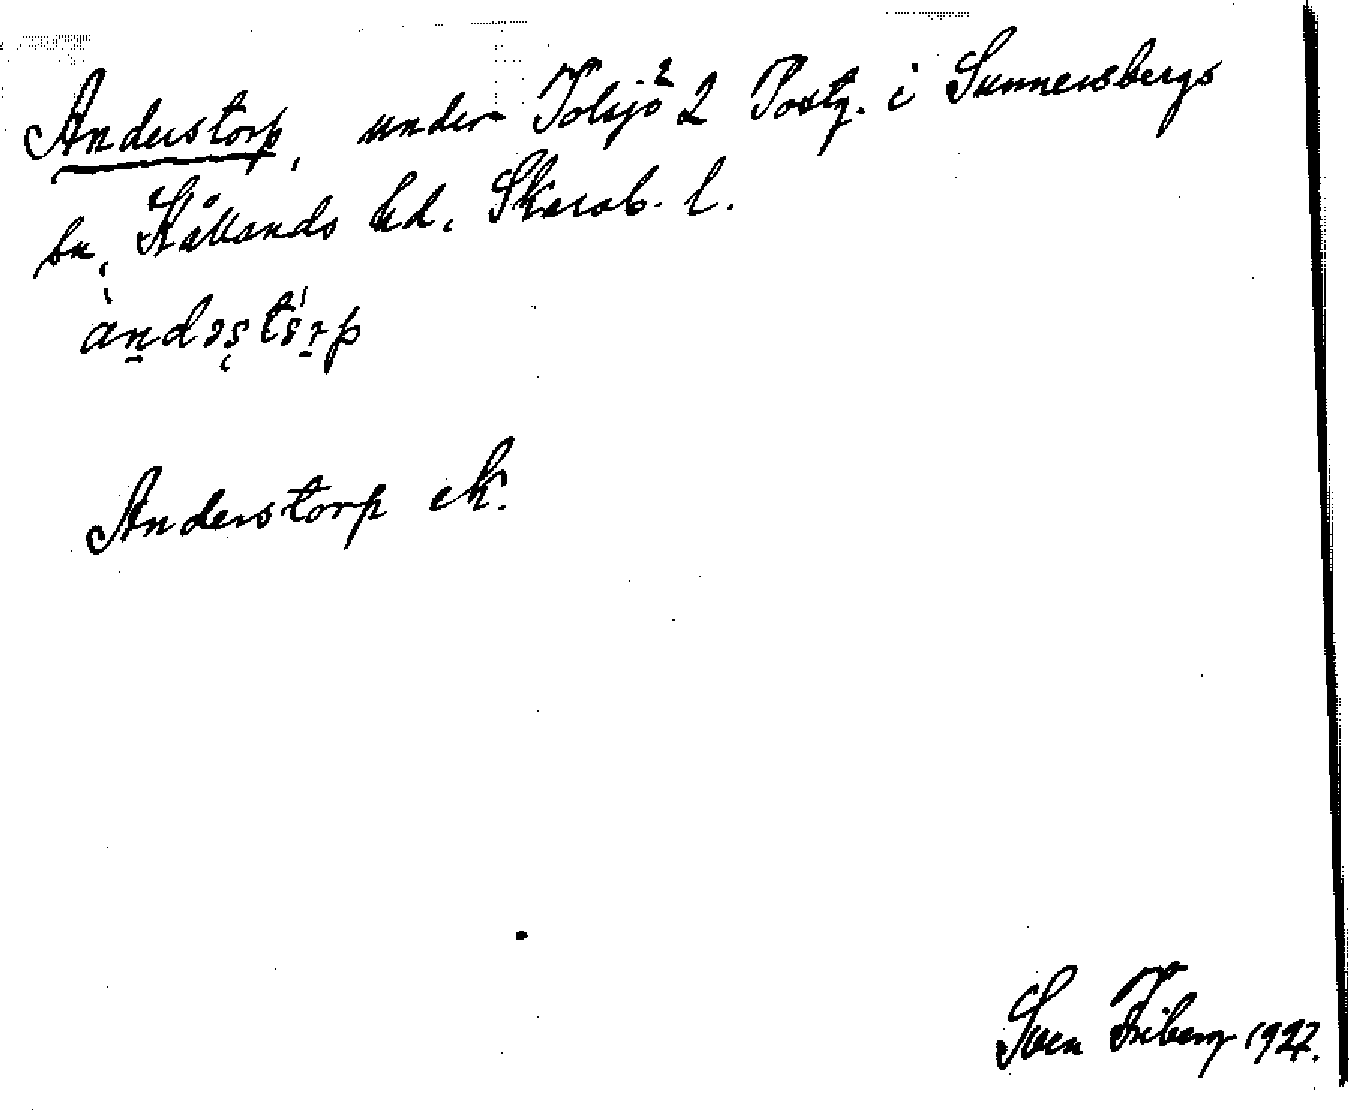 Anderstorp, under Tolsjö 2 Postg. i Sunnersbergs
sn, Kållands hd. Skarab. l.
àndəștórp
Anderstorp ek.
Sven Friberg 1927.